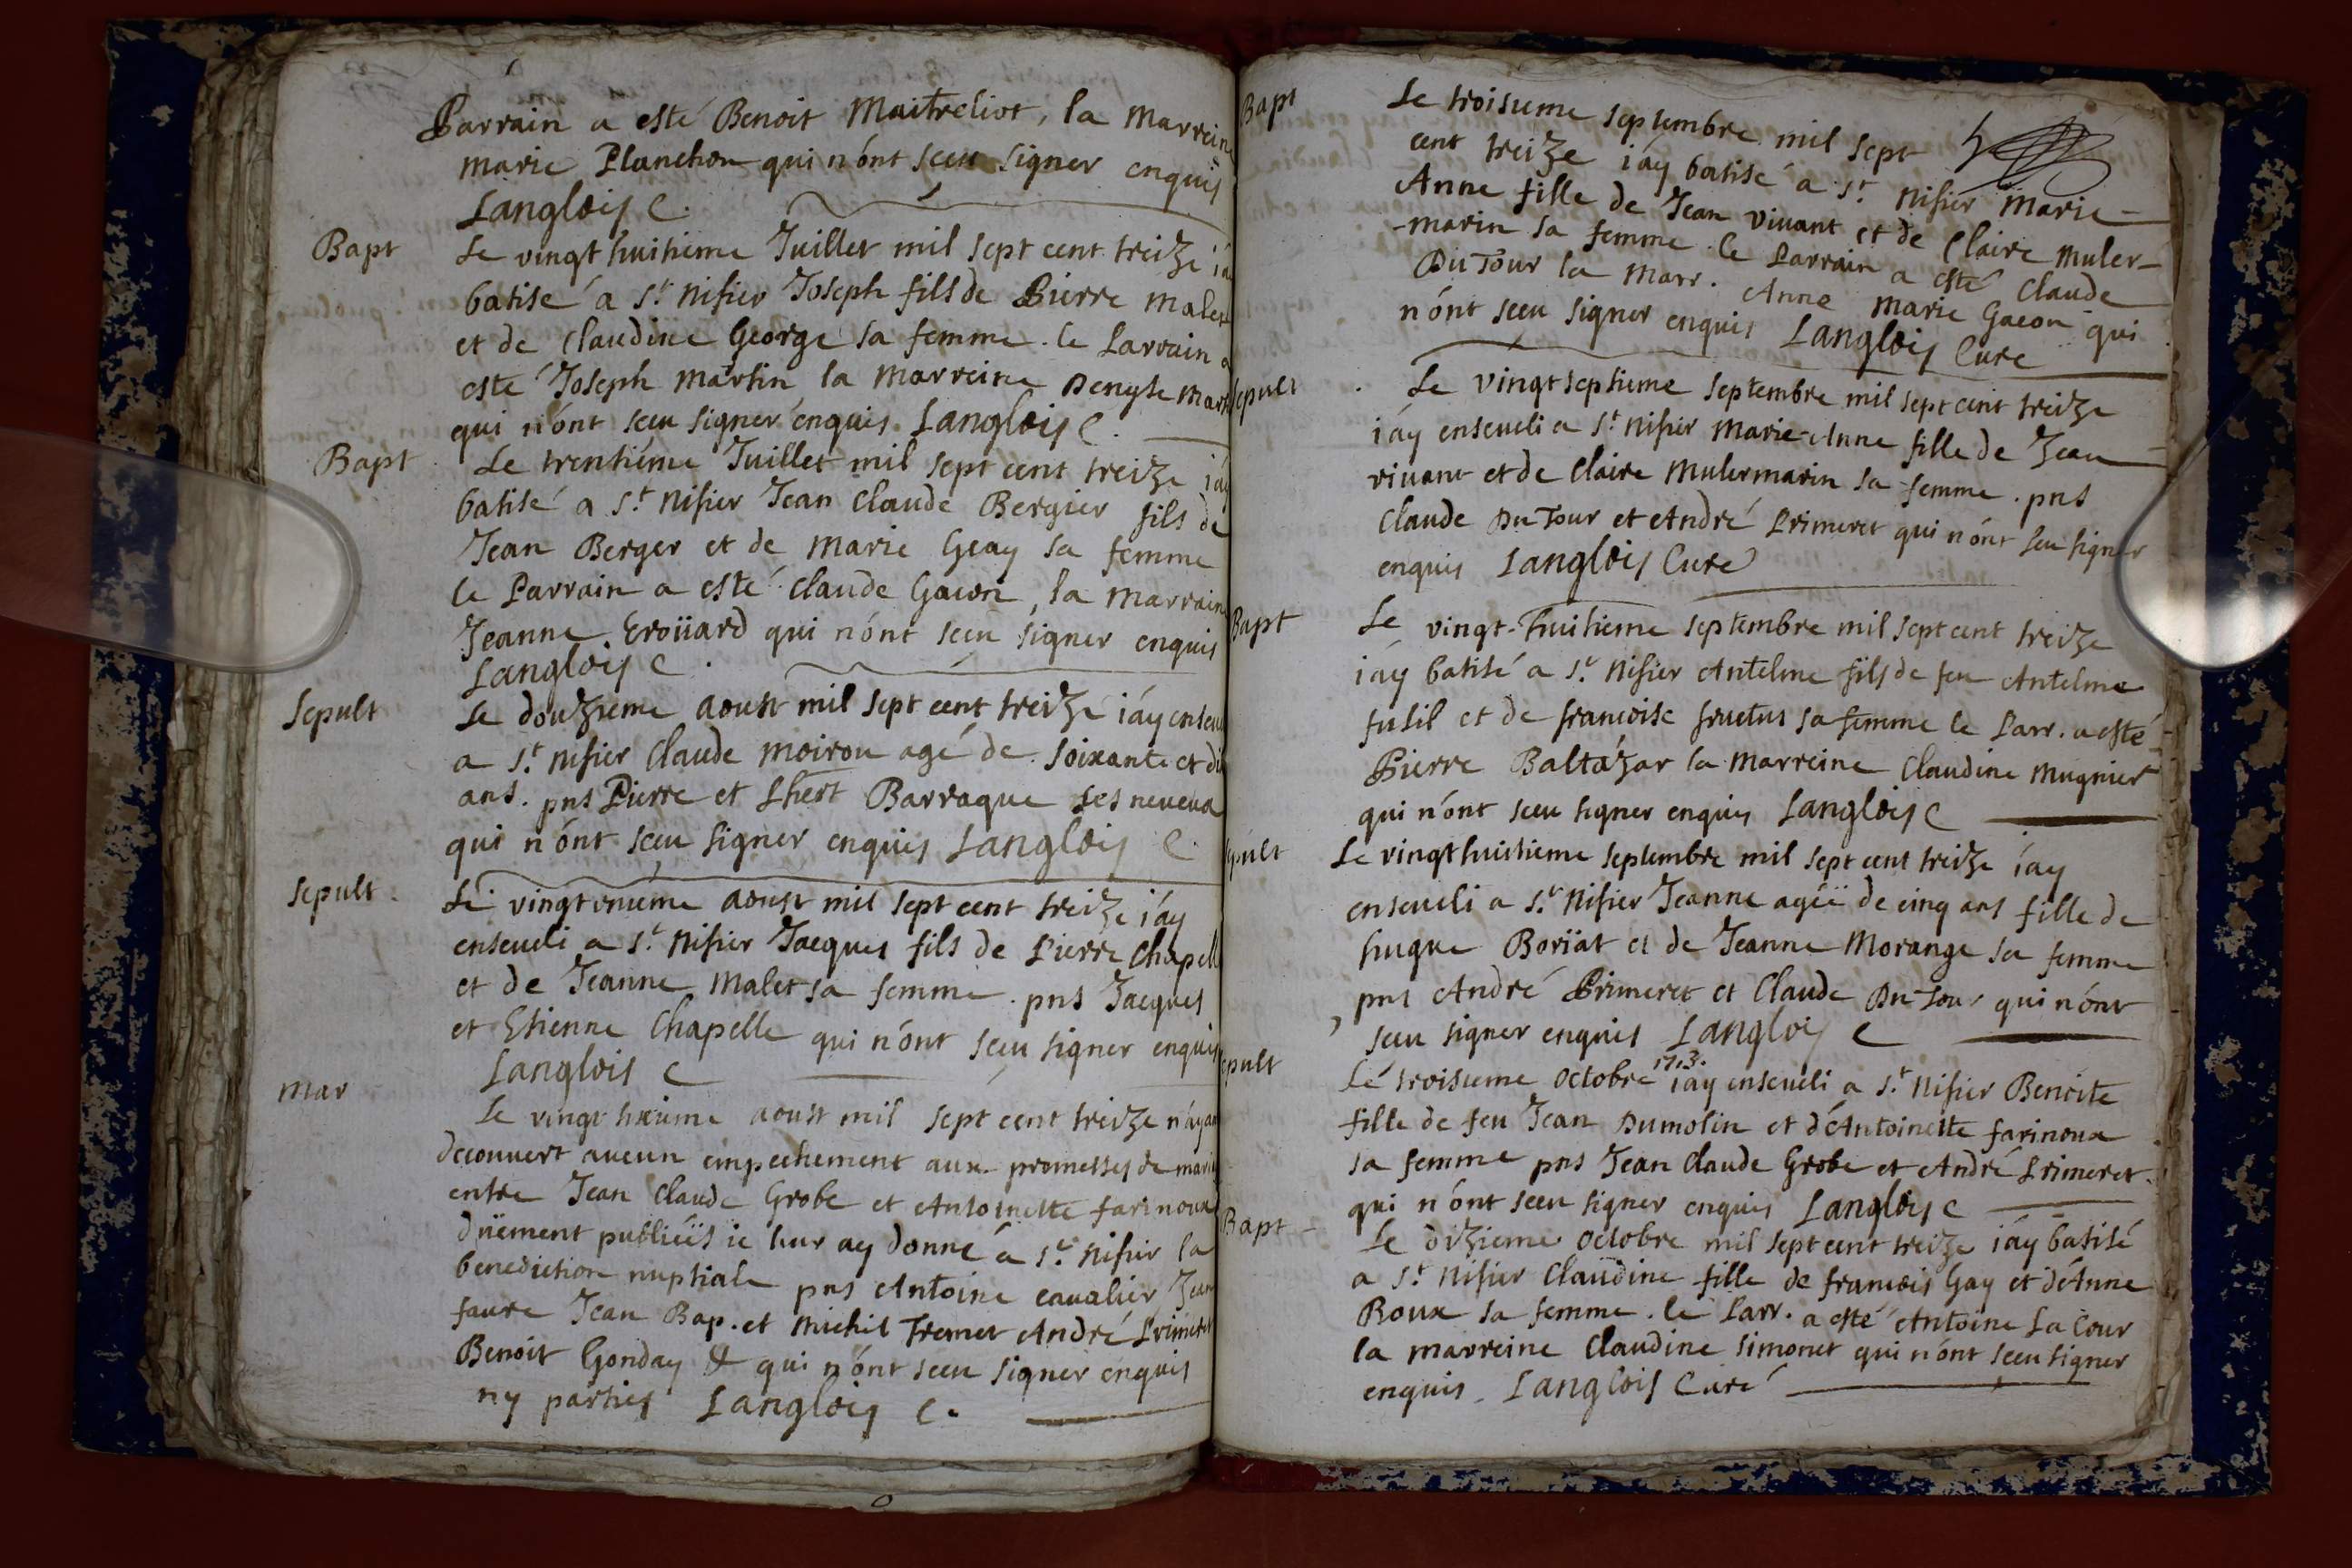 Parrain a esté Benoit Maitreliot, la Marreine
marie Planchon qui n'ont sceu signer enquis
Langlois C.
Bapt
Le vingt huitieme Juillet mil sept cent treize iay
batisé a St. Nisier Joseph fils de Pierre Malet
et de Claudine George sa femme. le Parrain a
esté Joseph Martin la Marreine Denyse Mart
qui n'ont sceu signer enquis. Langlois C.
Bapt
Le trentiéme Juillet mil sept cent treize iáy
batisé a St. Nisier Jean Claude Bergier fils de
Jean Berger et de Marie Geay sa femme
le Parrain a esté Claude Gacon, la Marraine
Jeanne Eroüard qui n'ont sceu signer enquis
Langlois C.
Sepult
Le douzieme aoust mil sept cent treize iáy enseu
a St. Nisier Claude Moirou agé de soixante et di
ans. pns Pierre et Barraque ses neveux
qui n'ont sceu signer enquis Langlois C.
Sepult.
Le vingt onieme aoust mil sept cent treize iáy
enseueli a St. Nisier Jacques fils de Pierre Chapelle
et de Jeanne Malet sa femme. pns Jacques
et Etienne Chapelle qui n'ont sceu signer enquis
Langlois C
Mar
Le vingt aoust mil sept cent treize n'ayan
decouvert aucun empechement aux promesses de maria
entre Jean Claude Grobe et Antoinette farinoux
düement publiéës ie leur ay donné a St. Nisier la
benediction nuptiale pns Antoine caualier Jean
faure Jean Bap. et Michel Tremet André Primeret
Benoit Gonday & qui n'ont sceu signer enquis
ny parties Langlois C.
Bapt
Le troisieme septembre mil sept
cent treize iáy batisé a St. Nisier Marie
Anne fille de Jean Vivant et de Claire Muler-
-marin sa femme le Parrain a esté Claude
DuTour la Marr. Anne Marie Gacon qui
n'ont sceu signer enquis Langlois Curé
Sepult
Le vingt septieme septembre mil sept cent treize
iáy enseueli a St. Nisier Marie-Anne fille de Jean
vivant et de Claire Mulermarin sa femme. pns
Claude DuTour et André Primeret qui n'ont sceu signer
enquis Langlois Curé
Bapt
Le vingt-huitieme septembre mil sept cent treize
iáy batisé a St. Nisier Antelme fils de feu Antelme
fusil et de francoise fructus sa femme le Parr. a esté
Pierre Baltazar la Marreine Claudine Mugnier
qui n'ont sceu signer enquis Langlois C
Sepult
Le vingt huitieme septembre mil sept cent treize iáy
enseueli a St. Nisier Jeanne agéë de cinq ans fille de
hugue Boriat et de Jeanne Morange sa femme
pns André Primeret et Claude DuTour qui n'ont
sceu signer enquis Langlois C
Sepult
Le troisieme octobre 1713. iay enseueli a St. Nisier Benoite
fille de feu Jean Dumolin et d'Antoinette farinoux
sa femme pns Jean Claude Grobe et André Primeret.
qui n'ont sceu signer enquis Langlois C
Bapt
Le dizieme octobre mil sept cent treize iáy batisé
a St. Nisier Claudine fille de francois Gay et d'Anne
Roux sa femme. le Parr. a esté Antoine La Cour
la marreine Claudine Simonet qui n'ont sceu signer
enquis. Langlois Curé